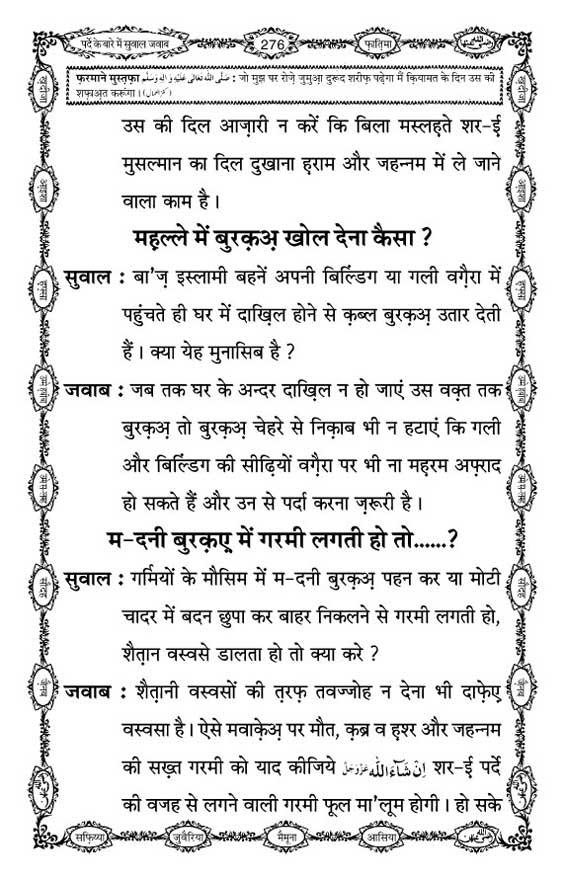 पर्दे के बारे में सुवाल जवाब
276
फ़ातिमा
फ़रमाने मुस्तफ़ा صَلَّى اللّٰهُ تَعَالٰى عَلَيْهِ وَاٰلِهٖ وَسَلَّم : जो मुझ पर रोज़े जुमुआ़ दुरूद शरीफ़ पढ़ेगा मैं क़ियामत के दिन उस की
शफ़ाअ़त करूंगा।
उस की दिल आज़ारी न करें कि बिला मस्लहते शर-ई
मुसल्मान का दिल दुखाना ह़राम और जहन्नम में ले जाने
वाला काम है।
मह़ल्ले में बुरक़अ़ खोल देना कैसा ?
सुवाल : बा'ज़ इस्लामी बहनें अपनी बिल्डिंग या गली वग़ैरा में
पहुंचते ही घर में दाख़िल होने से क़ब्ल बुरक़अ़ उतार देती
हैं। क्या येह मुनासिब है ?
जवाब : जब तक घर के अन्दर दाख़िल न हो जाएं उस वक़्त तक
बुरक़अ़ तो बुरक़अ़ चेहरे से निक़ाब भी न हटाएं कि गली
और बिल्डिंग की सीढ़ियों वग़ैरा पर भी ना मह़रम अफ़्राद
हो सकते हैं और उन से पर्दा करना ज़रूरी है।
म-दनी बुरक़ए़ में गरमी लगती हो तो......?
सुवाल : गर्मियों के मौसिम में म-दनी बुरक़अ़ पहन कर या मोटी
चादर में बदन छुपा कर बाहर निकलने से गरमी लगती हो,
शैत़ान वस्वसे डालता हो तो क्या करे ?
जवाब : शैत़ानी वस्वसों की त़रफ़ तवज्जोह न देना भी दाफ़ेए़
वस्वसा है। ऐसे मवाक़ेअ़ पर मौत, क़ब्र व ह़श्र और जहन्नम
की सख़्त गरमी को याद कीजिये اِنْ شَآءَ اللّٰه عَزَّوَجَلَّ शर-ई पर्दे
की वजह से लगने वाली गरमी फूल मा'लूम होगी। हो सके
सफ़िय्या
जुवैरिया
मैमूना
आसिया